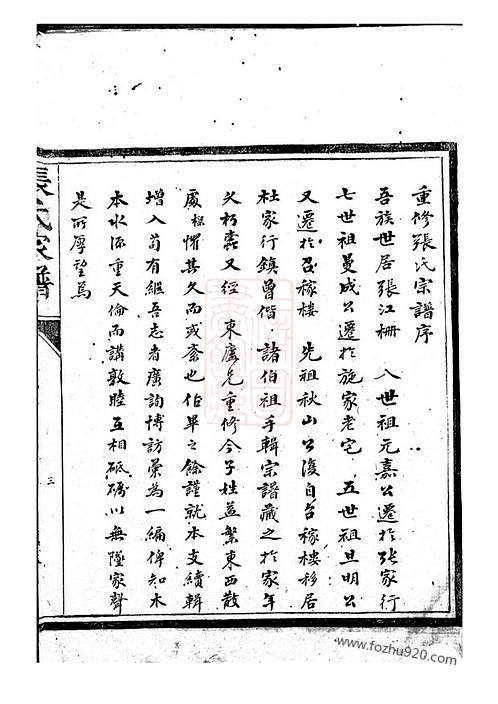 重修張氏宗譜序
吾族世居張江柵 八世祖元嘉公遷於張家行
七世祖曼成公遷於施家老宅 五世祖旦明公
又遷於召稼樓 先祖秋山公復自召稼樓移居
杜家行鎮曾偕 諸伯祖手輯宗譜藏之於家年
久朽蠹又經 東廬兄重修今子姓益繁東西散
處棣懼其久而或紊也作畢之餘謹就本支續輯
增入苟有繼吾志者廣詢博訪彙為一編俾知木
本水源重天倫而講敦睦互相砥礪以無墜家聲
是所厚望焉
張氏家譜
三
www.fozhu920.com